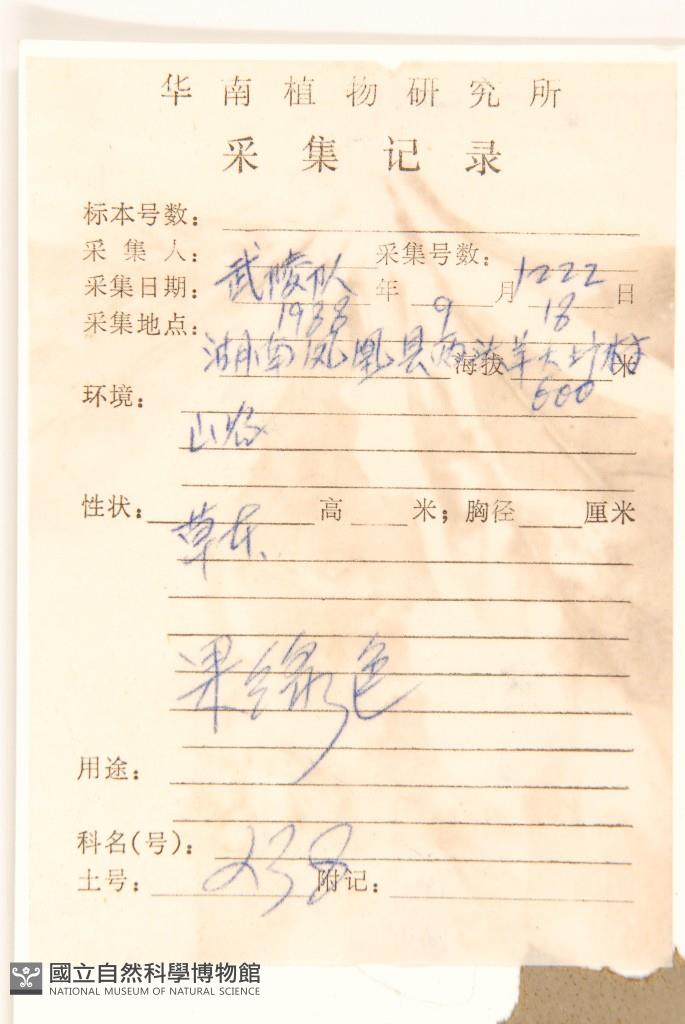 华南植物研究所
采集记录
标本号数:
采集人: 武陵队 采集号数: 1222
采集日期: 1988 年 9 月 18 日
采集地点: 湖南凤凰县 海拔 600 米
环境: 山谷
性状: 草本 高 米; 胸径 厘米
果绿色
用途:
科名(号): 238
土号: 附记:
國立自然科學博物館
NATIONAL MUSEUM OF NATURAL SCIENCE